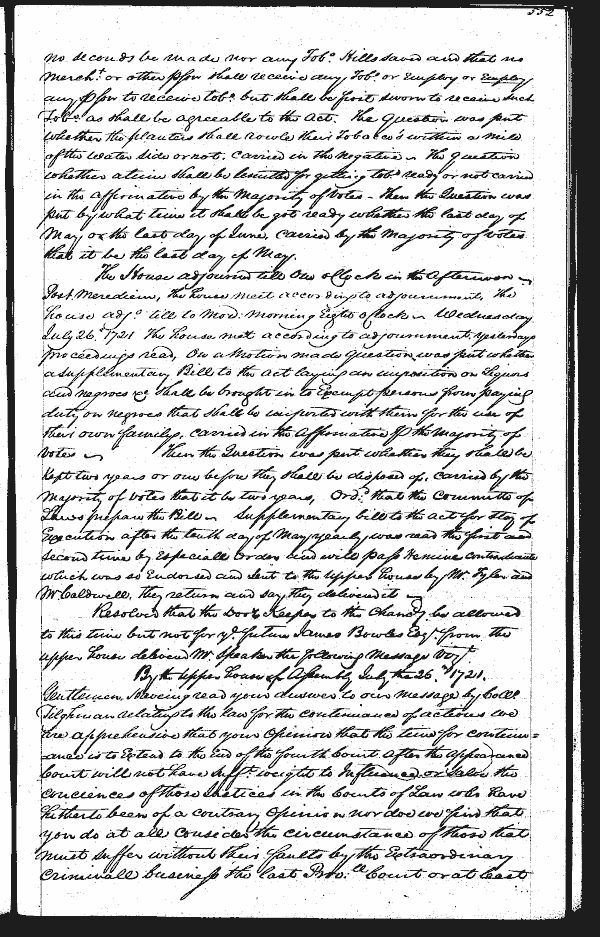 552
no seconds be made nor any Tobo. Hills saved and that no
Mercht. or other pson shall receive any Tobo. or Employ or Employ
any pson to receive tobo. but shall be first sworn to receive such
Tobo. as shall be agreeable to the Act. The Question was put
whether the planters shall rowle their Tobacco's within a mile
of the water side or not, Carried in the Negative ~ The Question
whether a time shall be limitted for getting tobo. ready or not carried
in the affirmative by the Majority of Votes - then the Question was
put by what time it shall be got ready whether the last day of
May or the last day of June, Carried by the Majority of votes
that it be the last day of May.
The House adjourned till One o Clock in the Afternoon ~
Post Meridiem, The house meet according to adjournment, The
house adjd. till to Mor. morning Eight o Clock ~ Wednesday
July 26th. 1721 The house met according to adjournment, yesterdays
proceedings read, On a Motion made Question was put whether
a supplementary Bill to the Act laying an imposition on Liquors
and negroes &c shall be brought in to Exempt persons from paying
duty on negroes that shall be imported with them for the use of
their own familys, carried in the Affirmative p the Majority of
votes ~ Then the Question was put whether they shall be
kept two years or one before they shall be disposed of, carried by the
Majority of votes that it be two years, Ordd. that the Committe of
Laws prepare the Bill ~ Supplementary bill to the act for stay of
Execution after the tenth day of May yearly was read the first and
second time by Especiall Order and will pass Nemine Contradicente
which was so Endorsed and sent to the upper house by Mr. Tyler and
Mr Caldwell, they return and say they delivered it ~
Resolved that the Door Keeper to the Chancy. be allowed
to this time but not for ye. future James Bowles Esqr. from the
upper house delivers Mr. Speaker the following Message Vizt.
By the upper house of Assembly July the 26th. 1721.
Gentlemen, Haveing read your Answer to our Message by Collo.
Tilghman relating to the law for the continuance of actions we
are apprehensive that your Opinion that the time for continu=
ance is to Extend to the End of the fourth Court after the appearance
Court will not have sufft. weight to Influence or the
conciences of those Justices in the Courts of Law who have
hitherto been of a contrary Opinion nor doe we find that
you do at all consider the circumstance of those that
must suffer without their faults by the Extraordinary
Criminall business the last Provll. Court or at least